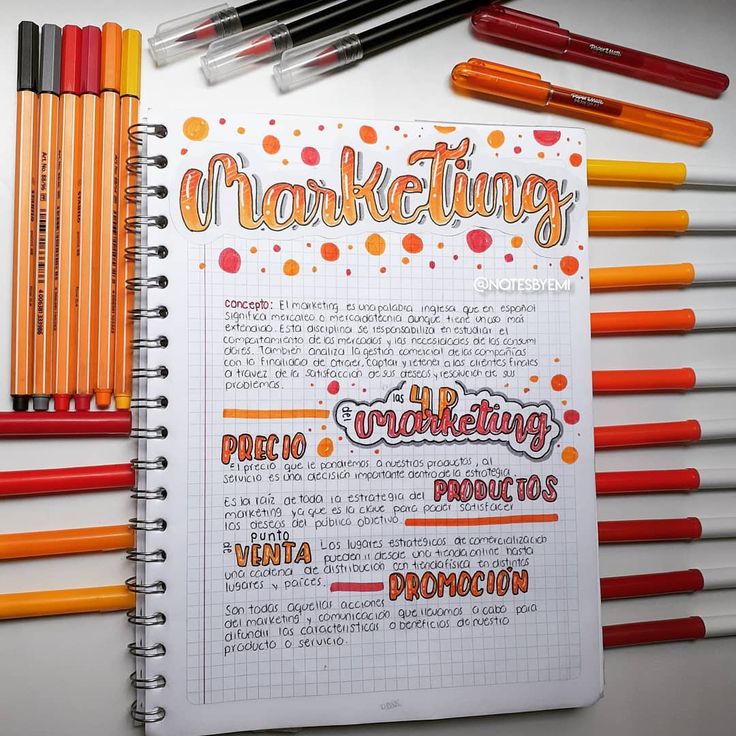 Marketing
@NOTESBYEMI
Concepto: El marketing es una palabra inglesa que en español
significa mercadeo o mercadotecnia aunque tiene un uso más
extendido. Esta disciplina se responsabiliza en estudiar el
comportamiento de los mercados y las necesidades de los consumi
dores. También analiza la gestión comercial de las compañías
con la finalidad de atraer, captar y retener a los clientes finales
a travez de la satisfacción de sus deseos y resolución de sus
problemas.
las 4P
del marketing
PRECIO
El precio que le pondremos a nuestros productos, al
servicio es una decisión importante dentro de la estrategia.
Es la raíz de toda la estrategia del PRODUCTOS
marketing ya que es la clave para poder satisfacer
los deseos del público objetivo.
punto
de VENTA Los lugares estratégicos de comercialización
pueden ir desde una tienda online hasta
una cadena de distribución con tienda física en distintos
lugares y países.
PROMOCIÓN
Son todas aquellas acciones
del marketing y comunicación que llevamos a cabo para
difundir las características o beneficios de nuestro
producto o servicio.